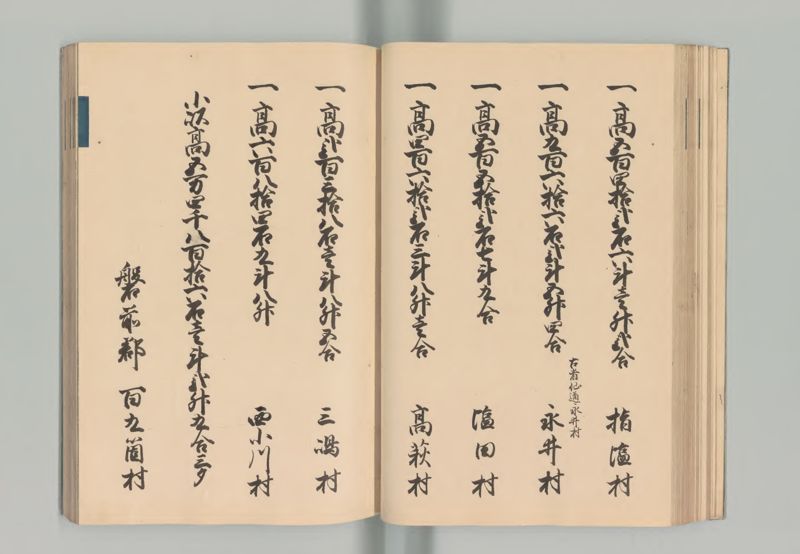 一高五百四拾弐石六斗壱升弐合 指塩村
一高九百六拾六石弐斗五升四合 永井村
一高五百五拾弐石七斗九合 塩田村
一高四百六拾弐石三斗八升壱合 高萩村
一高弐百三拾八石壱斗八升五合 三嶋村
一高六百八拾四石九斗八升 西小川村
小以高五万四千八百拾六石壱斗弐升九合三夕
磐前郡 百九箇村